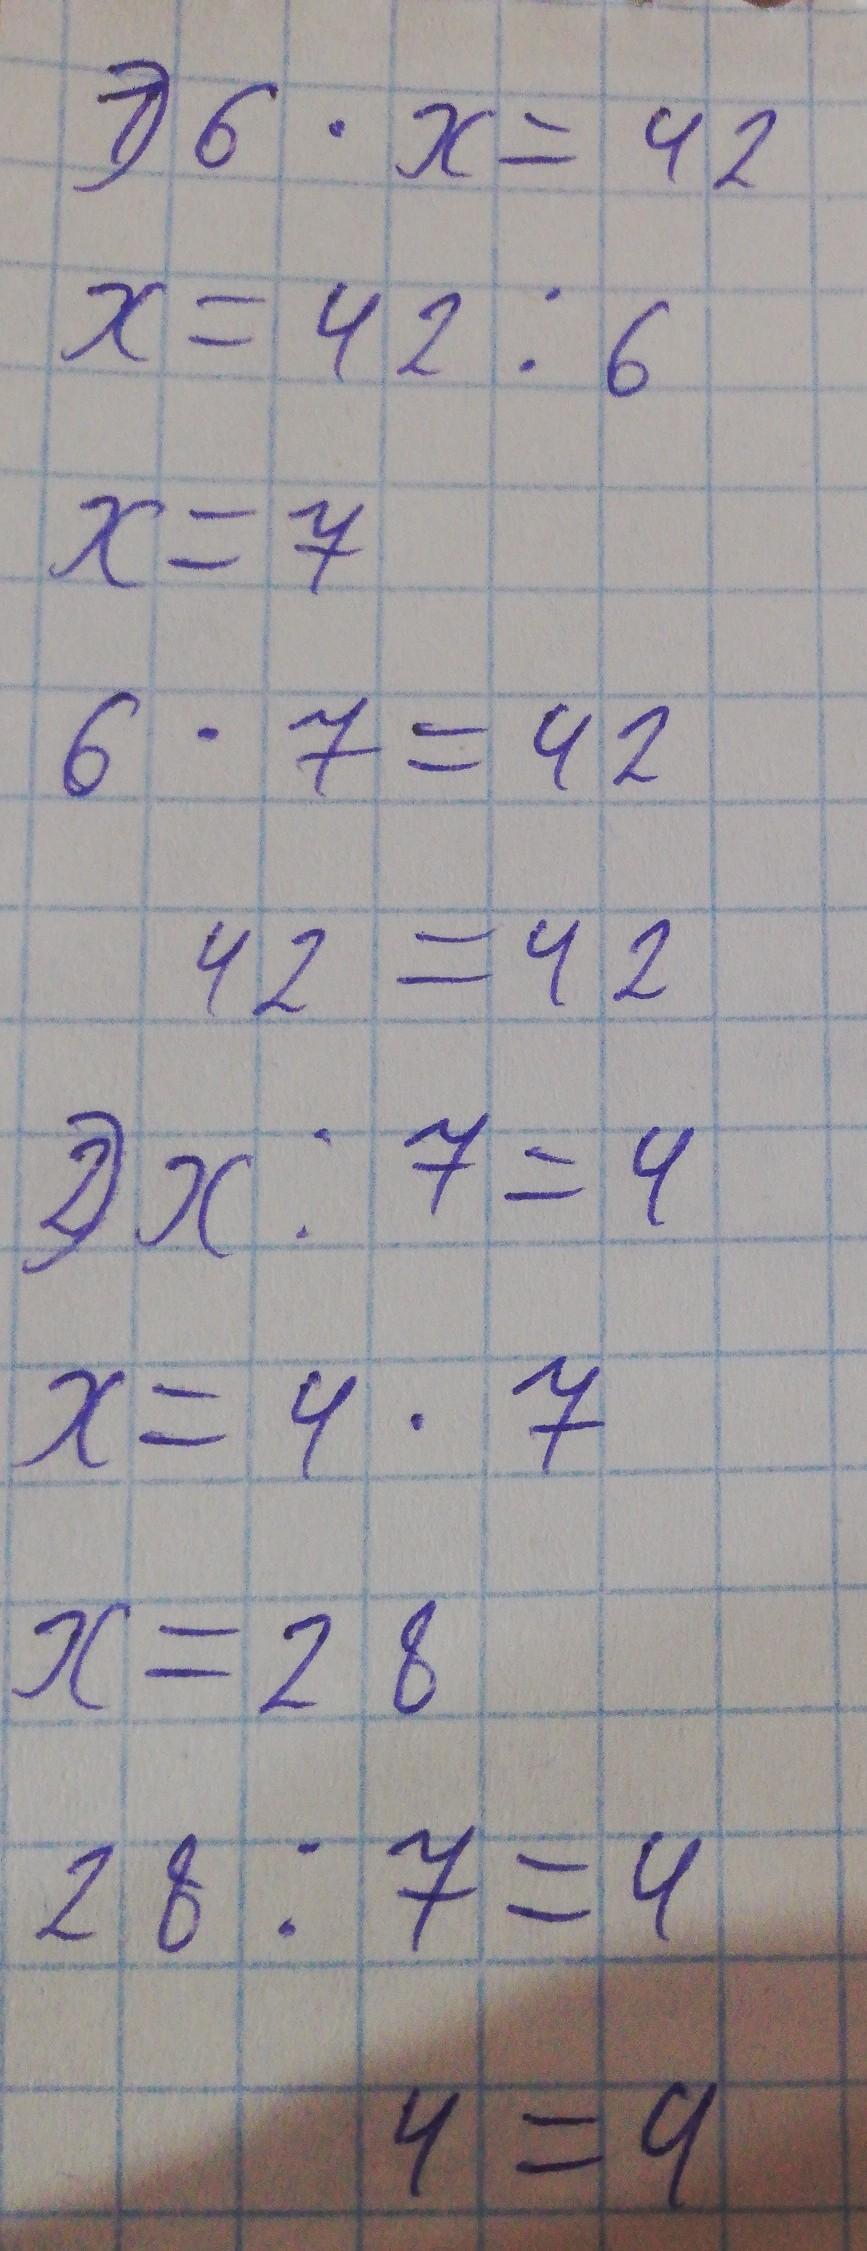 1) 6 · x = 42
x = 42 : 6
x = 7
6 · 7 = 42
42 = 42
2) x : 7 = 4
x = 4 · 7
x = 28
28 : 7 = 4
4 = 4